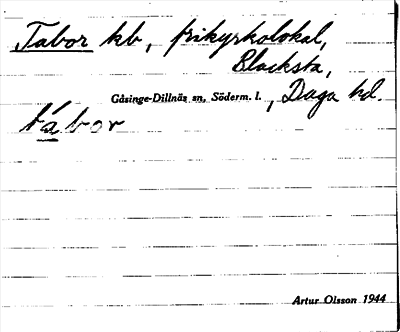 Tabor kb, frikyrkolokal,
Blacksta,
Gåsinge-Dillnäs sn, Söderm. l., Daga hd.
tábor
Artur Olsson 1944